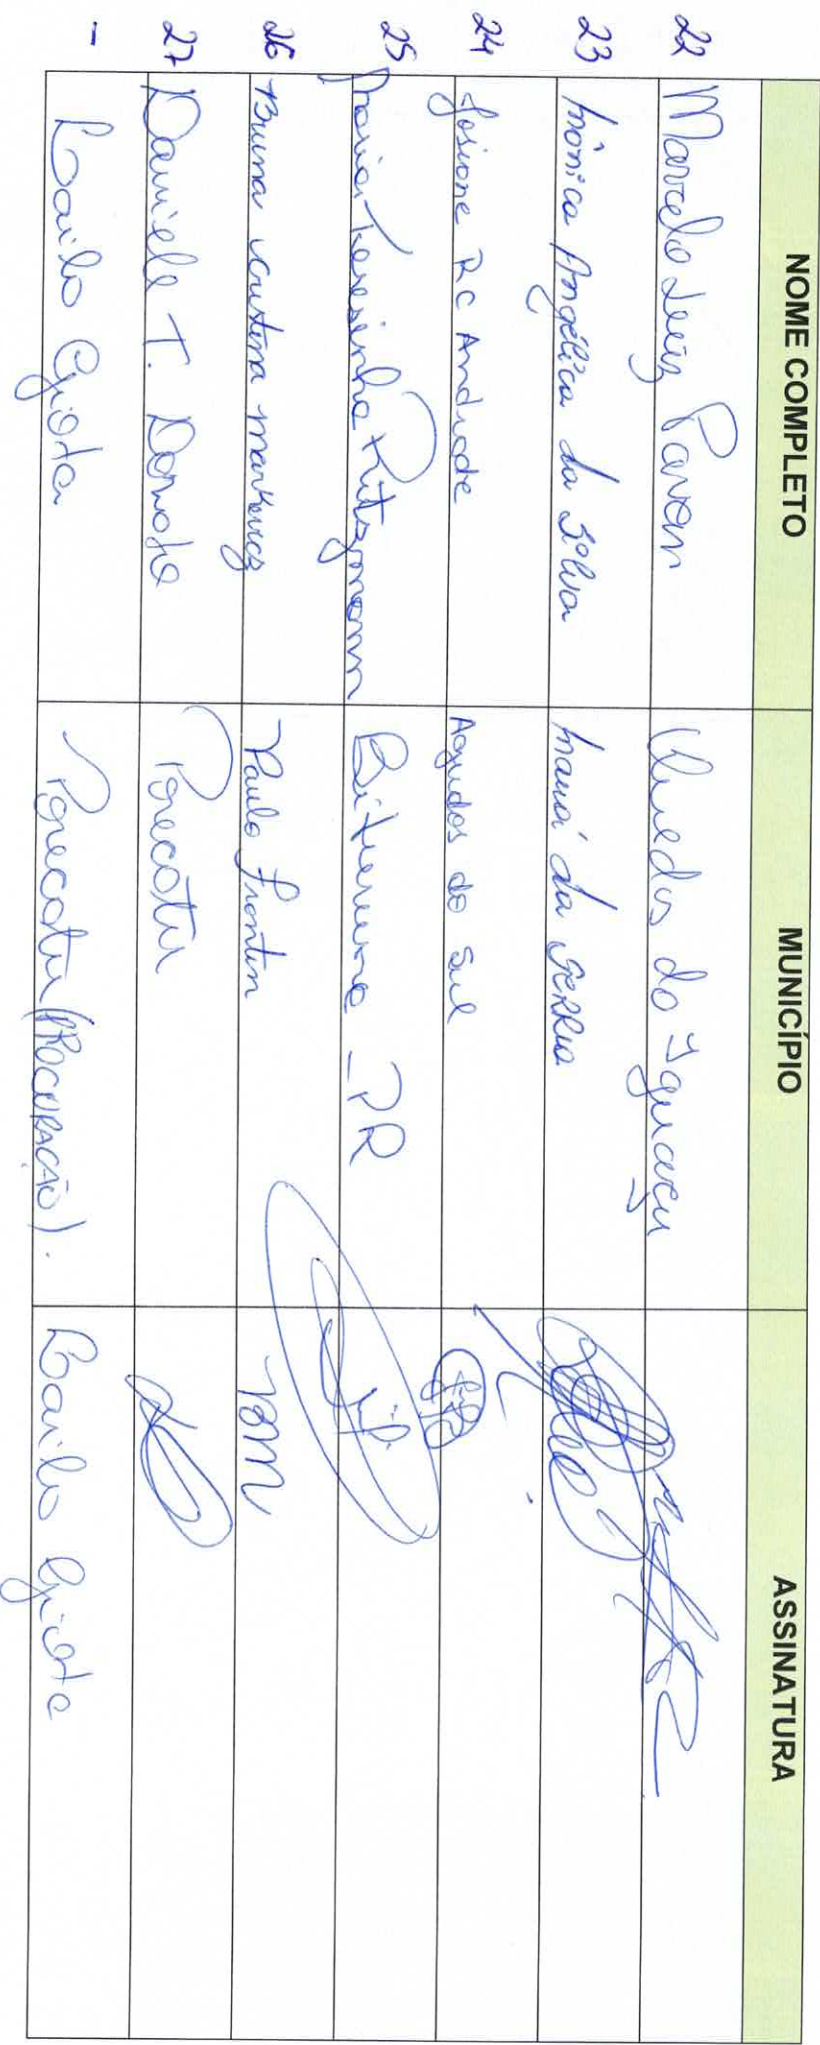 NOME COMPLETO MUNICÍPIO ASSINATURA
22 Marcelo Luiz Pavan Quedas do Iguaçu
23 Mônica Angélica da Silva Mauá da SERRA
24 Josiane RC Andrade Agudos do Sul
25 Maria Teresinha Ritzmann Bituruna - PR
26 Bruna Cristina Markevicz Paulo Frontin BM
27 Daniele T. Porecatu
- Danilo Porecatu (PROCURAÇÃO). Danilo